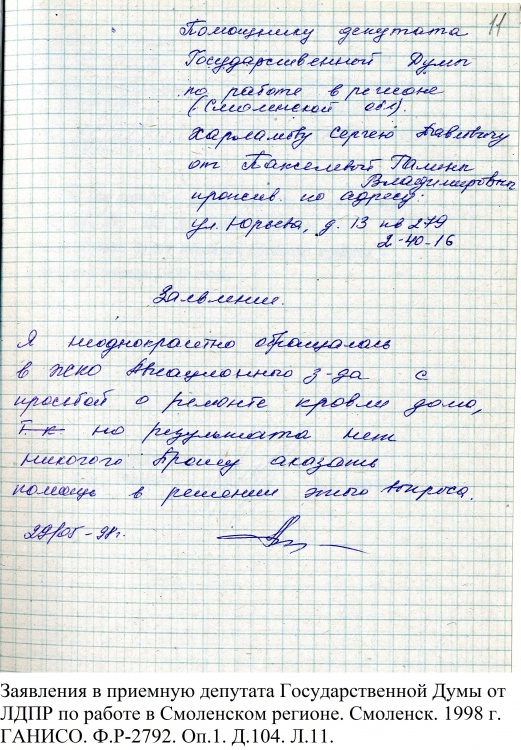 11
Помощнику депутата
Государственной Думы
по работе в регионе
(Смоленской обл).
Харламову Сергею Павловичу
от Панселевой Галины
Владимировны
прожив. по адресу:
ул. Юрьева, д. 13 кв 279
2-40-16
Заявление.
Я неоднократно обращалась
в ЖКО Авиационного з-да с
просьбой о ремонте кровли дома,
т. к но результата нет
никакого Прошу оказать
помощь в решении этого вопроса.
29/05-98г.
Заявления в приемную депутата Государственной Думы от
ЛДПР по работе в Смоленском регионе. Смоленск. 1998 г.
ГАНИСО. Ф.Р-2792. Оп.1. Д.104. Л.11.